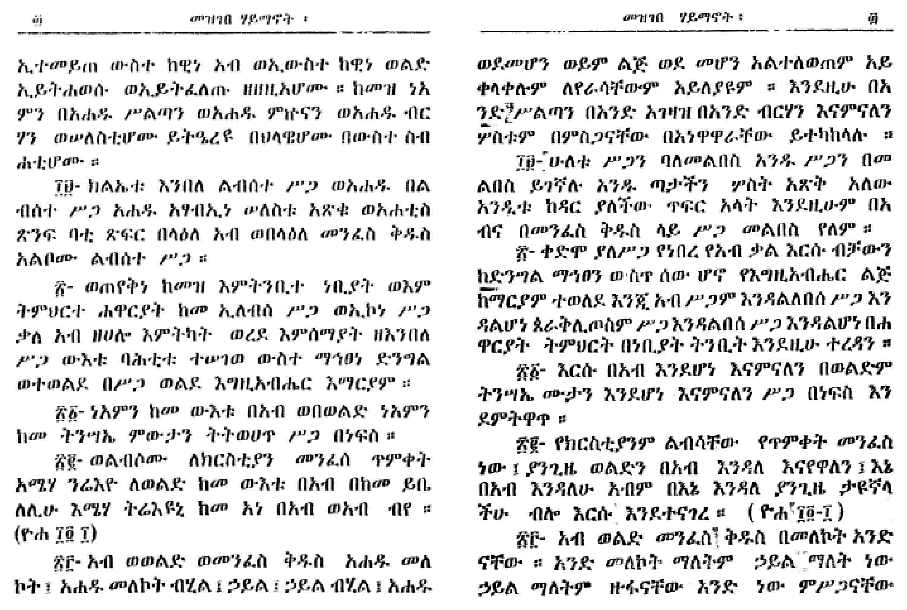 መዝገበ ሃይማኖት ፡
ኢተመይጠ ውስተ ከዊነ አብ ወኢውስተ ከዊነ ወልድ
ኢይትሐወሱ ወኢይትፈለጡ ዘዘዚአሆሙ ። ከመዝ ነአ
ምን በአሐዱ ሥልጣን ወአሐዱ ምኵናን ወአሐዱ ብር
ሃን ወሠለስቲሆሙ ይትዔረዩ በህላዌሆሙ በውስተ ስብ
ሐቲሆሙ ።
፲፱- ክልኤቱ እንበለ ልብሰተ ሥጋ ወአሐዱ በል
ብሰተ ሥጋ አሐዱ አፃብኢነ ሠለስቱ አጽቁ ወአሐቲሰ
ጽንፍ ባቲ ጽፍር በላዕለ አብ ወበላዕለ መንፈስ ቅዱስ
አልቦሙ ልብሰተ ሥጋ ።
፳- ወጠየቅነ ከመዝ እምትንቢተ ነቢያት ወእም
ትምህርተ ሐዋርያት ከመ ኢለብሰ ሥጋ ወኢኮነ ሥጋ
ቃለ አብ ዘሀሎ እምትካት ወረደ እምሰማያት ዘእንበለ
ሥጋ ውእቱ ባሕቲቱ ተሠገወ ውስተ ማኅፀነ ድንግል
ወተወልደ በሥጋ ወልደ እግዚአብሔር እማርያም ።
፳፩- ነአምን ከመ ውእቱ በአብ ወበወልድ ነአምን
ከመ ትንሣኤ ምውታን ትትወሀጥ ሥጋ በነፍስ ።
፳፪- ወልብሶሙ ለክርስቲያን መንፈሰ ጥምቀት
አሜሃ ንሬእዮ ለወልድ ከመ ውእቱ በአብ በከመ ይቤ
ለሊሁ እሜሃ ትሬእዩኒ ከመ አነ በአብ ወአብ ብየ ።
(ዮሐ ፲፬ ፲)
፳፫- አብ ወወልድ ወመንፈስ ቅዱስ አሐዱ መለ
ኮት ፤ አሐዱ መለኮት ብሂል ፤ ኃይል ፤ ኃይል ብሂል ፤ አሐዱ
መዝገበ ሃይማኖት ፡
ወደመሆን ወይም ልጅ ወደ መሆን አልተለወጠም አይ
ቀላቀሉም ለየራሳቸውም አይለያዩም ። እንደዚሁ በአ
ንድ ሥልጣን በአንድ አገዛዝ በአንድ ብርሃን እናምናለን
ሦስቱም በምስጋናቸው በአነዋዋራቸው ይተካከላሉ ።
፲፱- ሁለቱ ሥጋን ባለመልበስ አንዱ ሥጋን በመ
ልበስ ይገኛሉ አንዱ ጣታችን ሦስት አጽቅ አለው
አንዲቱ ከዳር ያለችው ጥፍር አላት እንደዚሁም በአ
ብና በመንፈስ ቅዱስ ላይ ሥጋ መልበስ የለም ።
፳- ቀድሞ ያለሥጋ የነበረ የአብ ቃል እርሱ ብቻውን
ከድንግል ማኅፀን ውስጥ ሰው ሆኖ የእግዚአብሔር ልጅ
ከማርያም ተወለደ እንጂ አብ ሥጋም እንዳልለበሰ ሥጋ እን
ዳልሆነ ጰራቅሊጦስም ሥጋ እንዳልበሰ ሥጋ እንዳልሆነ በሐ
ዋርያት ትምህርት በነቢያት ትንቢት እንደዚሁ ተረዳን ።
፳፩- እርሱ በአብ እንደሆነ እናምናለን በወልድም
ትንሣኤ ሙታን እንደሆነ እናምናለን ሥጋ በነፍስ እን
ደምትዋጥ ።
፳፪- የክርስቲያንም ልብሳቸው የጥምቀት መንፈስ
ነው ፤ ያንጊዜ ወልድን በአብ እንዳለ እናየዋለን ፤ እኔ
በአብ እንዳለሁ አብም በእኔ እንዳለ ያንጊዜ ታዩኛላ
ችሁ ብሎ እርሱ እንደተናገረ ። (ዮሐ ፲፬-፲)
፳፫- አብ ወልድ መንፈስ ቅዱስ በመለኮት አንድ
ናቸው ። አንድ መለኮት ማለትም ኃይል ማለት ነው
ኃይል ማለትም ዙፋናቸው አንድ ነው ምሥጋናቸው